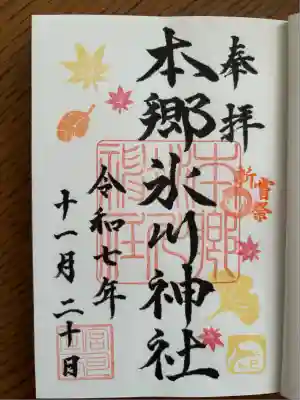 奉拝
新嘗祭
本郷氷川神社
令和七年
十一月二十日